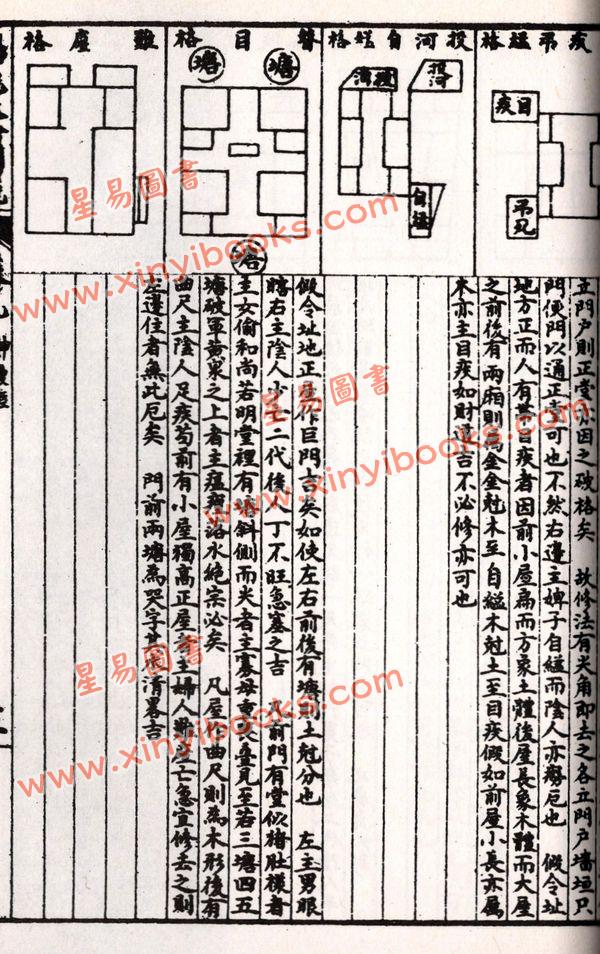 疾吊縊格
目疾
吊死
投河自縊格
投河
自縊
瞽目格
塘
塘
難產格
立門戶則正堂亦因之破格矣 故修法有尖角即去之各立門戶墻垣只
門便門以通正堂可也不然右邊主婢子自縊而陰人亦癆厄也 假令址
地方正而人有常目疾者因前小屋為而方象土體後屋長象木體而大屋
之前後有兩廂則為金金尅木至自縊木尅土至目疾假如前屋小長亦屬
木亦主目疾如財運吉不必修亦可也
假令址地正屋作巨門吉矣如使左右前後有塘則土尅分也 左主男眼
瞎右主陰人少亡二代後人丁不旺急塞之吉 凡前門有堂似猪肚樣者
主女偷和尚若明堂裡有塘斜側而尖者主寡母重喪疊見至若三塘四五
塘破軍黃泉之上者主瘟癀落水絕宗必矣 凡屋作曲尺則為木形後有
曲尺主陰人足疾苟前有小屋獨高正屋者主婦人難產亡急宜修去之則
左邊住者無此厄矣 門前兩塘為哭字
www.xinyibooks.com
星易圖書
www.xinyibooks.com
星易圖書
www.xinyibooks.com
星易圖書